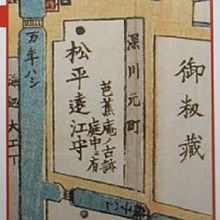 御籾藏
深川元町
芭蕉庵ノ古跡
庭中ニ有
松平遠江守
万年ハシ
海辺大工丁